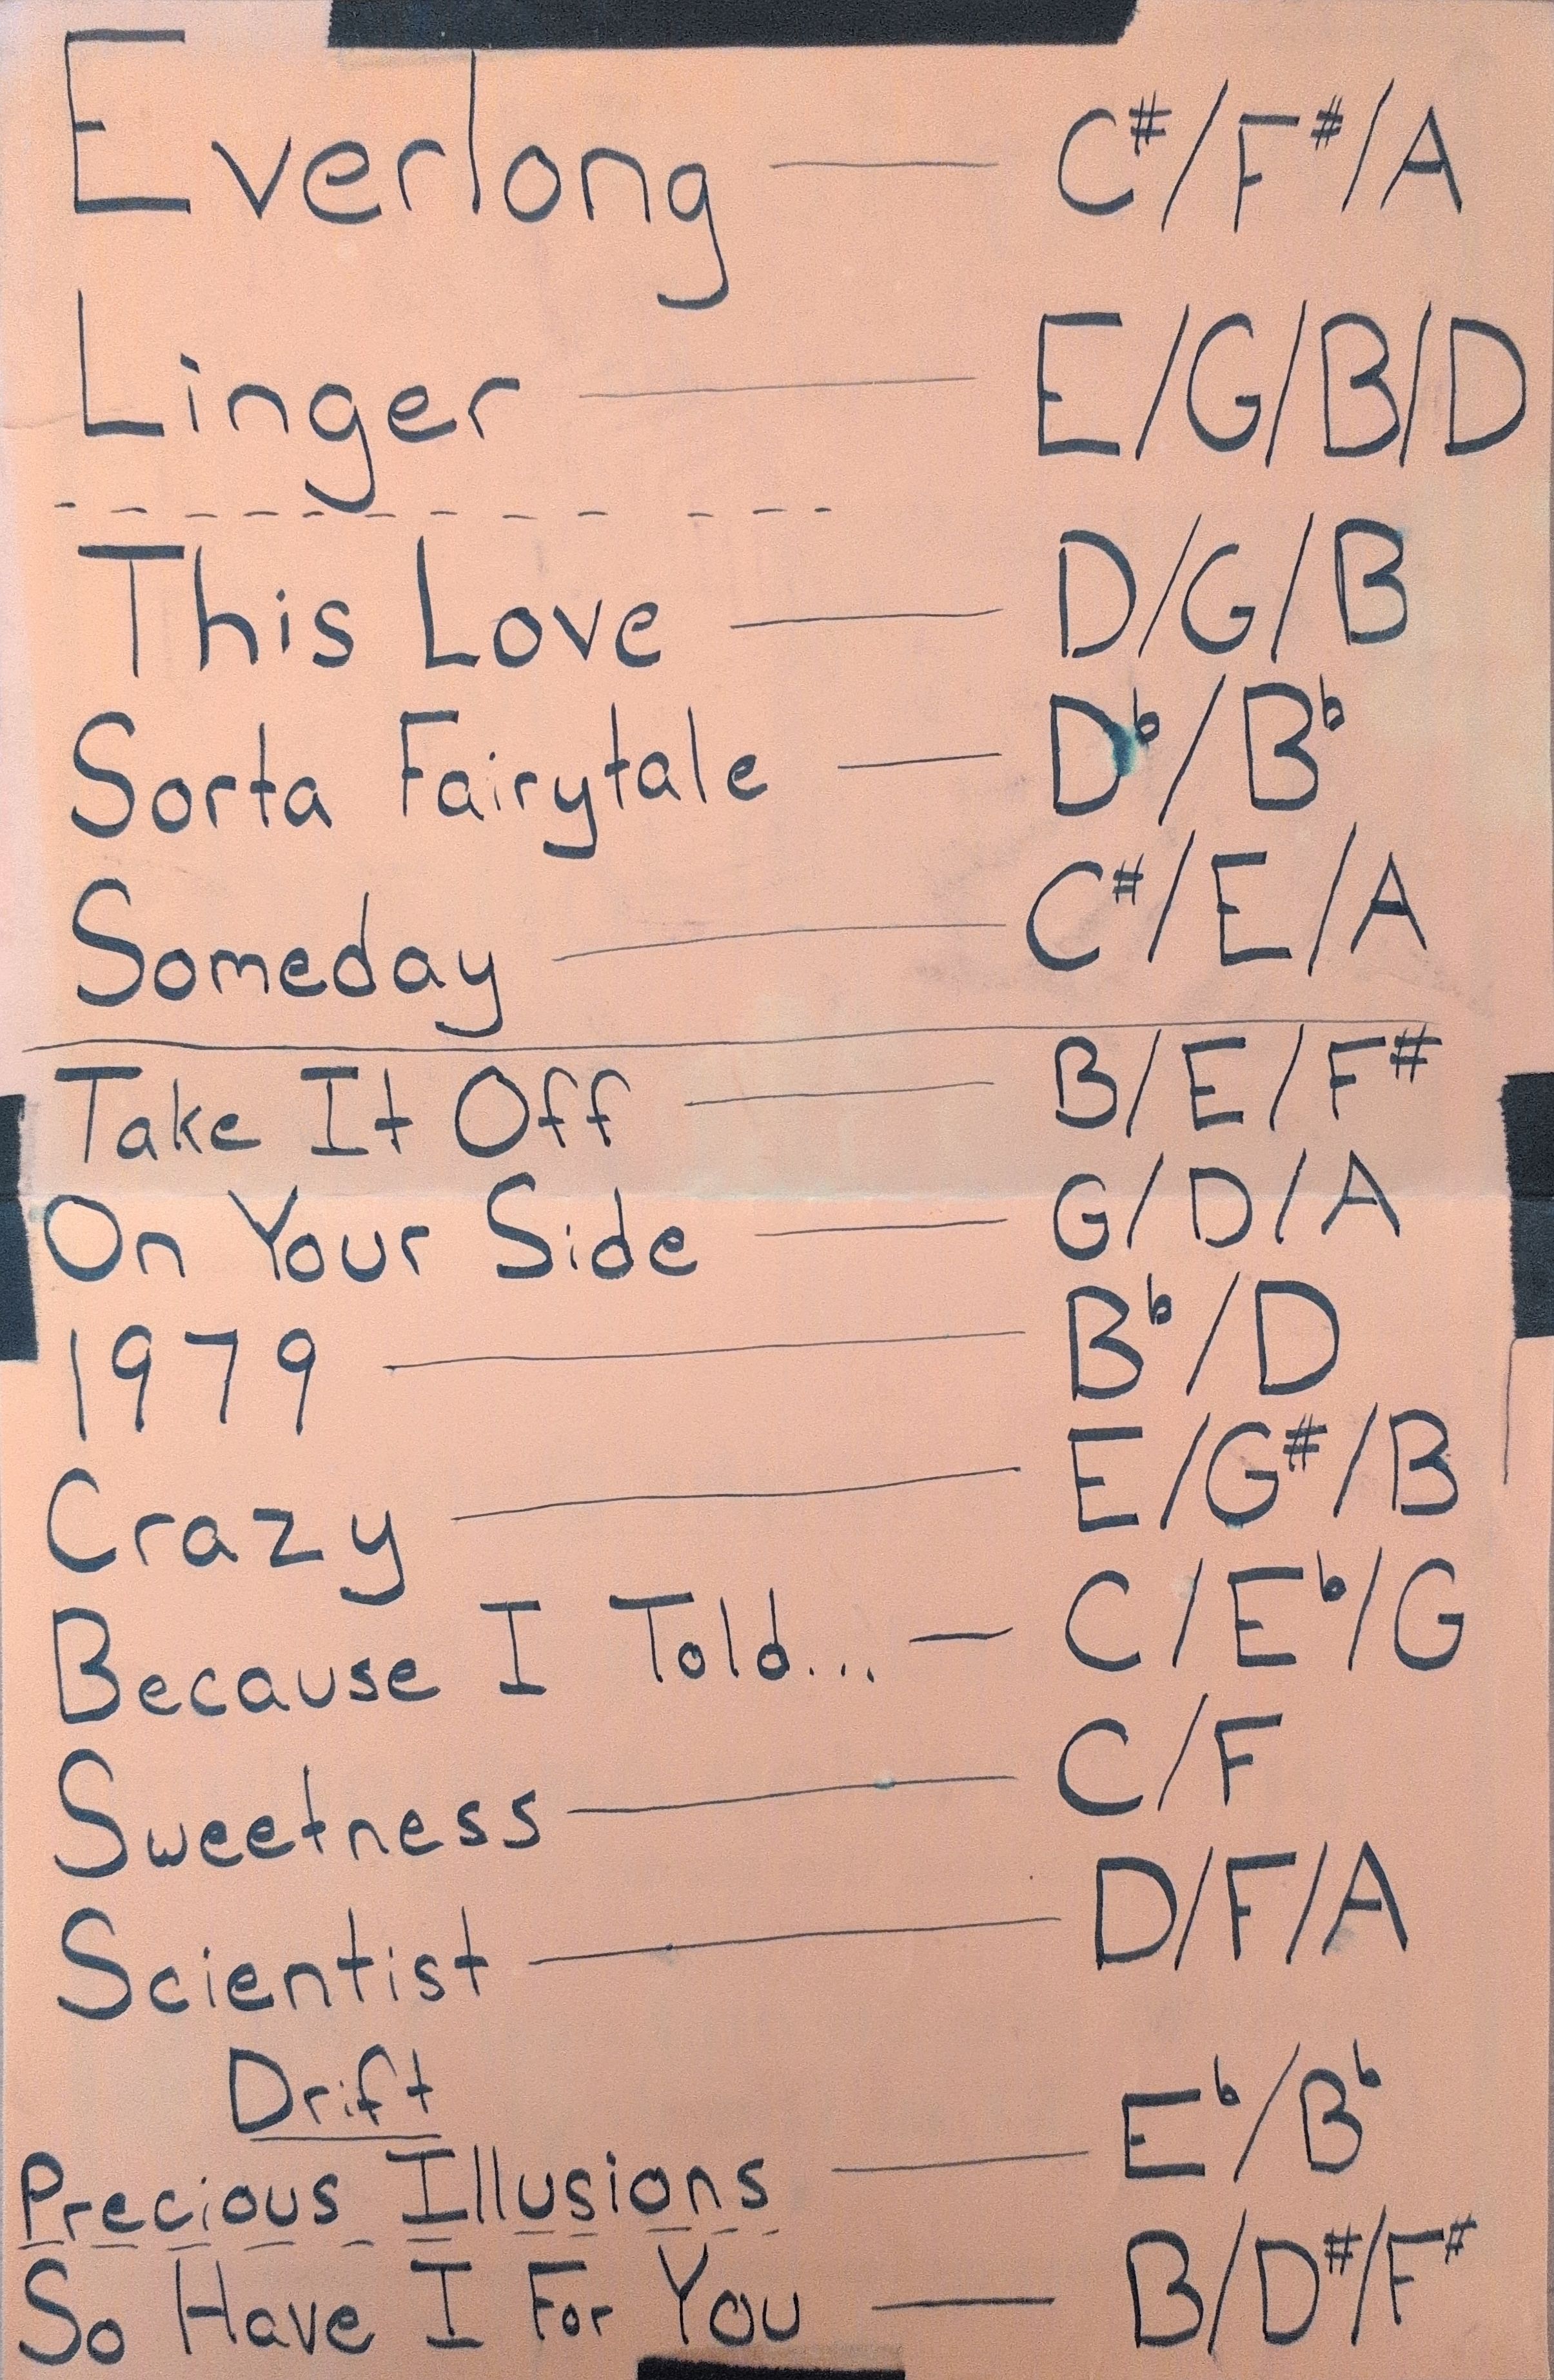 Everlong — C#/F#/A
Linger — E/G/B/D
This Love — D/G/B
Sorta Fairytale — D♭/B♭
Someday — C#/E/A
Take It Off — B/E/F#
On Your Side — G/D/A
1979 — B♭/D
Crazy — E/G#/B
Because I Told... — C/E♭/G
Sweetness — C/F
Scientist — D/F/A
Drift
Precious Illusions — E♭/B♭
So Have I For You — B/D#/F#